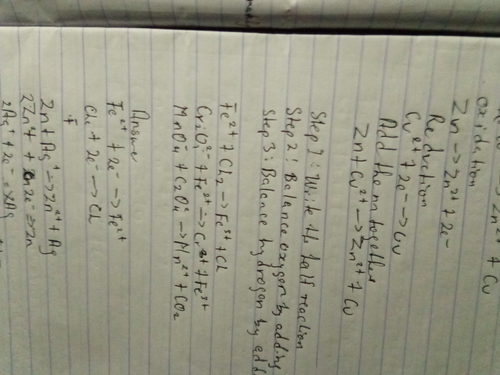 Zn²⁺ + Cu
oxidation
Zn → Zn²⁺ + 2e-
Reduction
Cu²⁺ + 2e- → Cu
Add them together
Zn + Cu²⁺ → Zn²⁺ + Cu
Step 1: Write the half reaction
Step 2: Balance oxygen by adding
Step 3: Balance hydrogen by add
Fe²⁺ + Cl₂ → Fe³⁺ + Cl
Cr₂O₇²⁻ + Fe²⁺ → Cr³⁺ + Fe³⁺
MnO₄⁻ + C₂O₄ → Mn²⁺ + CO₂
Answer
Fe²⁺ + 2e- → Fe³⁺
Cl₂ + 2e- → Cl
Zn + Ag⁺ → Zn²⁺ + Ag
2e → Zn
2Ag⁺ + 2e- → 2Ag